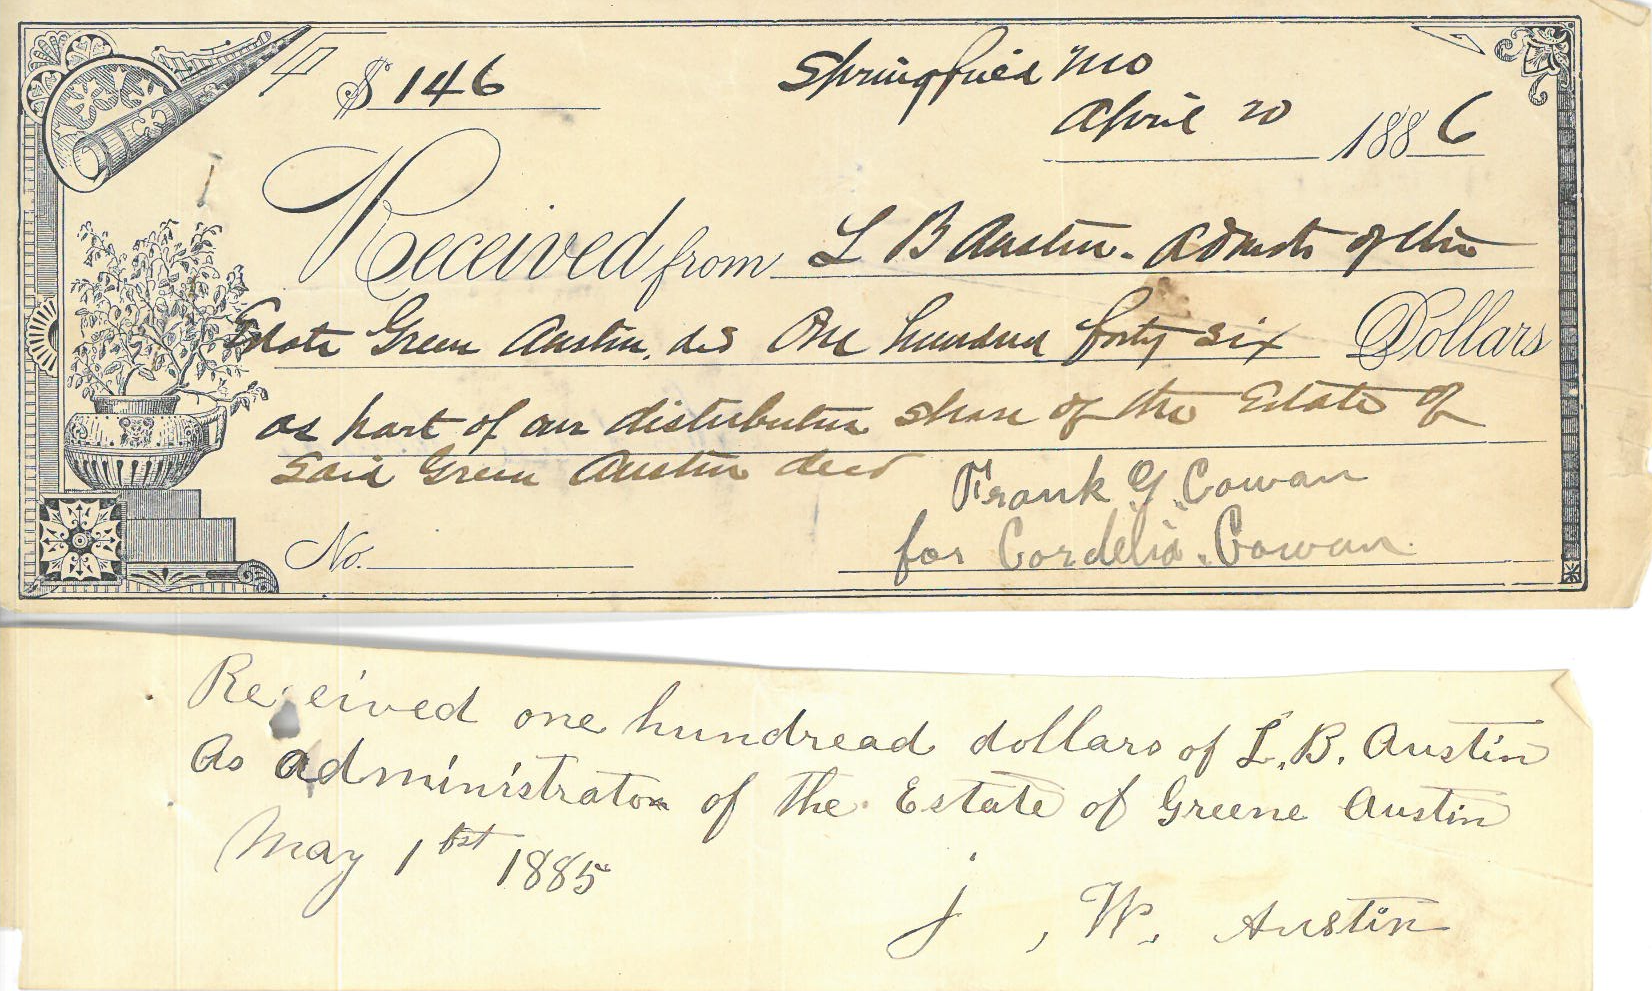 $ 146
Springfield Mo
April 20 1886
Received from L B Austin. Admr of the
Estate Green Austin, des One hundred forty six Dollars
as part of our distributive share of the Estate of
said Green Austin decd
Frank G. Cowan
No.
for Cordelia. Cowan.
Received one hundread dollars of L. B. Austin
As administrator of the Estate of Greene Austin
May 1st 1885
J, W. Austin